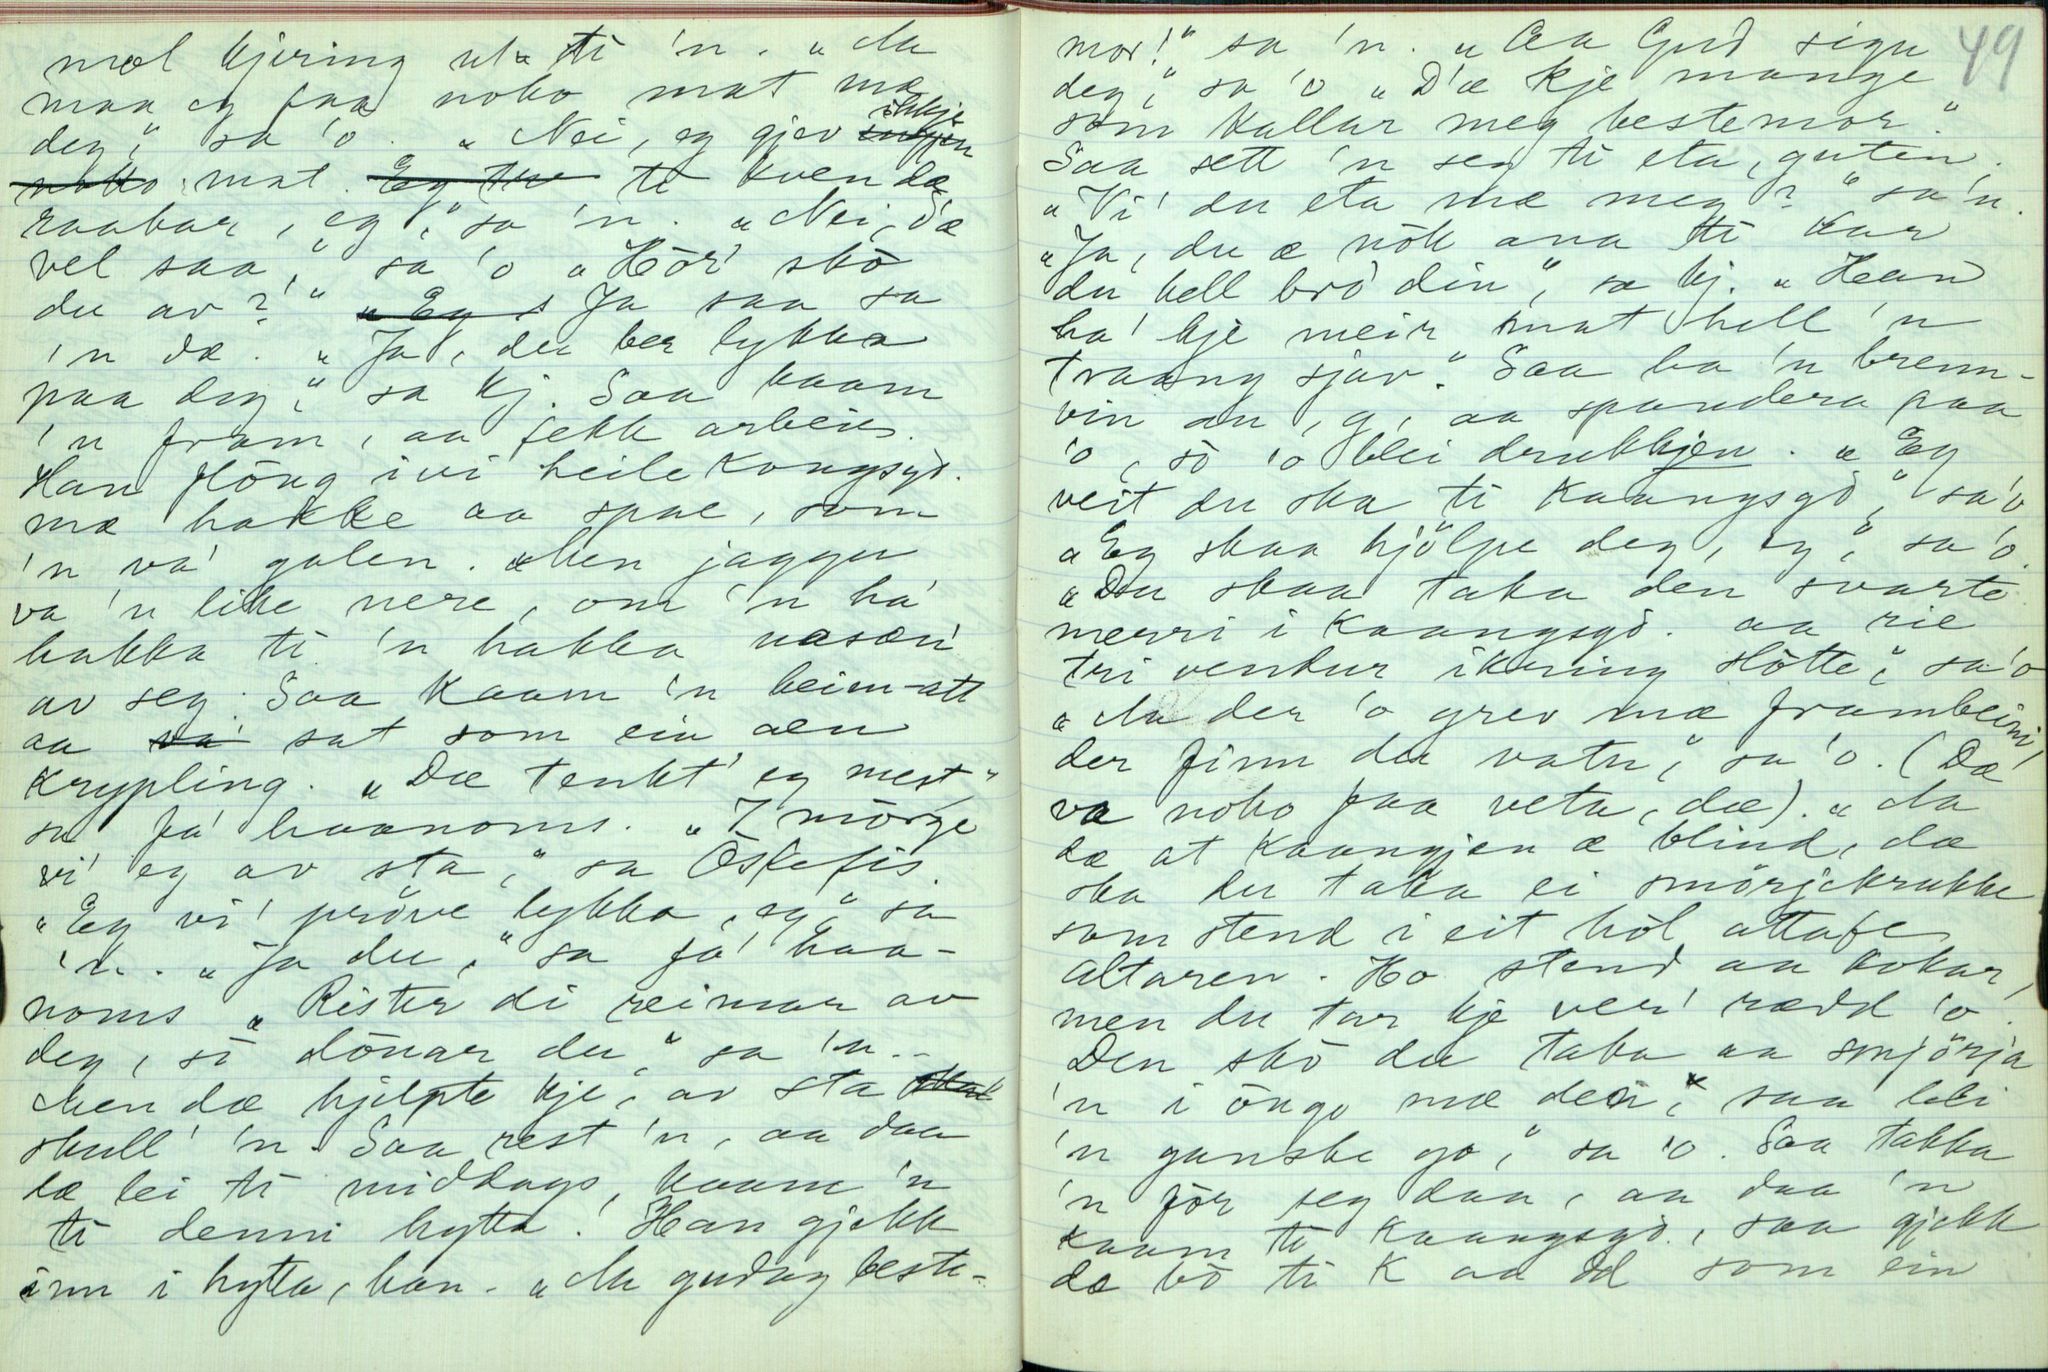 mæl kjering ut ti 'n. "Aa
maa eg faa noko mat mæ
deg," sa 'o. "Nei, eg gjev ikkje
mat. ti kvende
raabar, eg," sa 'n. "Nei, d'æ
vel saa," sa 'o "Hör' skö
du av?" Ja saa sa
'n dæ. "Ja, du ber lykka
paa deg," sa kj. Saa kaam
'n fram, aa fekk arbeie.
Han flöug ivi heile kongsgd.
mæ hakke aa spae, som
'n va' galen. Men jaggu
va 'n like nere, om 'n ha'
hakka ti 'n hakka
av seg. Saa kaam 'n heim-att
aa sat som ein aen
krypling. "Dæ tenkt' eg mest"
sa fa' haanoms. "I mörgo
vi' eg av sta," sa Öskefis.
"Eg vi' pröve lykka, eg," sa
'n. "Ja du," sa fa' haa-
noms "Rister di reimar av
deg, sö dönar du" sa 'n..
Men dæ hjelpte kje, av sta
skull' 'n. Saa rest 'n, aa daa
dæ lei ti middags, kaam 'n
ti denni hytta. Han gjekk
inn i hytta, han. "Aa gudag beste-
49
mor!" sa 'n. "Aa Gud signe
deg," sa 'o "D'æ kje mange
som kallar meg bestemor."
Saa sett 'n seg ti eta, guten.
"Vi' du eta mæ meg?" sa 'n.
"Ja, du æ nök ana ti kar
du hell brö' din", sa kj. "Han
ha' kje meir mat hell 'n
traang sjöv." Saa ha 'n brenn-
vin au, g, aa spandera paa
'o, sö 'o blei drukkjen. "Eg
veit du ska ti Kaangsgd," sa 'o
"Eg skaa hjölpe deg, eg," sa 'o.
"Du skaa taka den svarte
merri i Kaangsgd. aa rie
tri vendur ikring slötte," sa 'o
"Aa der 'o grev mæ frambeini
der finn du vatn," sa 'o. (Dæ
va noko faa veta, dæ). "Aa
dæ at kaangjen æ blind, dæ
ska du taka ei smörjekrukke
som stend i eit höl attafe
altaren. Ho stend aa kokar,
men du tar kje ver' rædd 'o.
Den skö du taka aa smjörja
'n i öugo mæ den," saa bli
'n ganske go," sa 'o. Saa takka
'n för seg daa, aa daa 'n
kaam ti Kaangsgd., saa gjekk
dæ bö ti K aa dd som ein